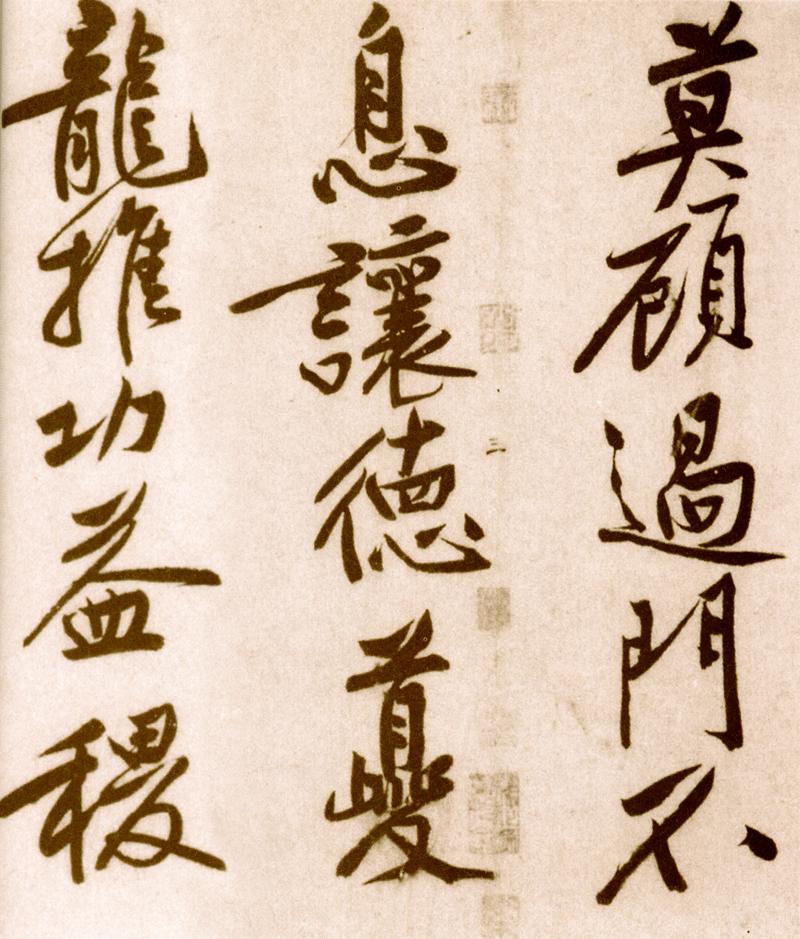 莫顾過門不
息讓德夔
龍推功益稷
三